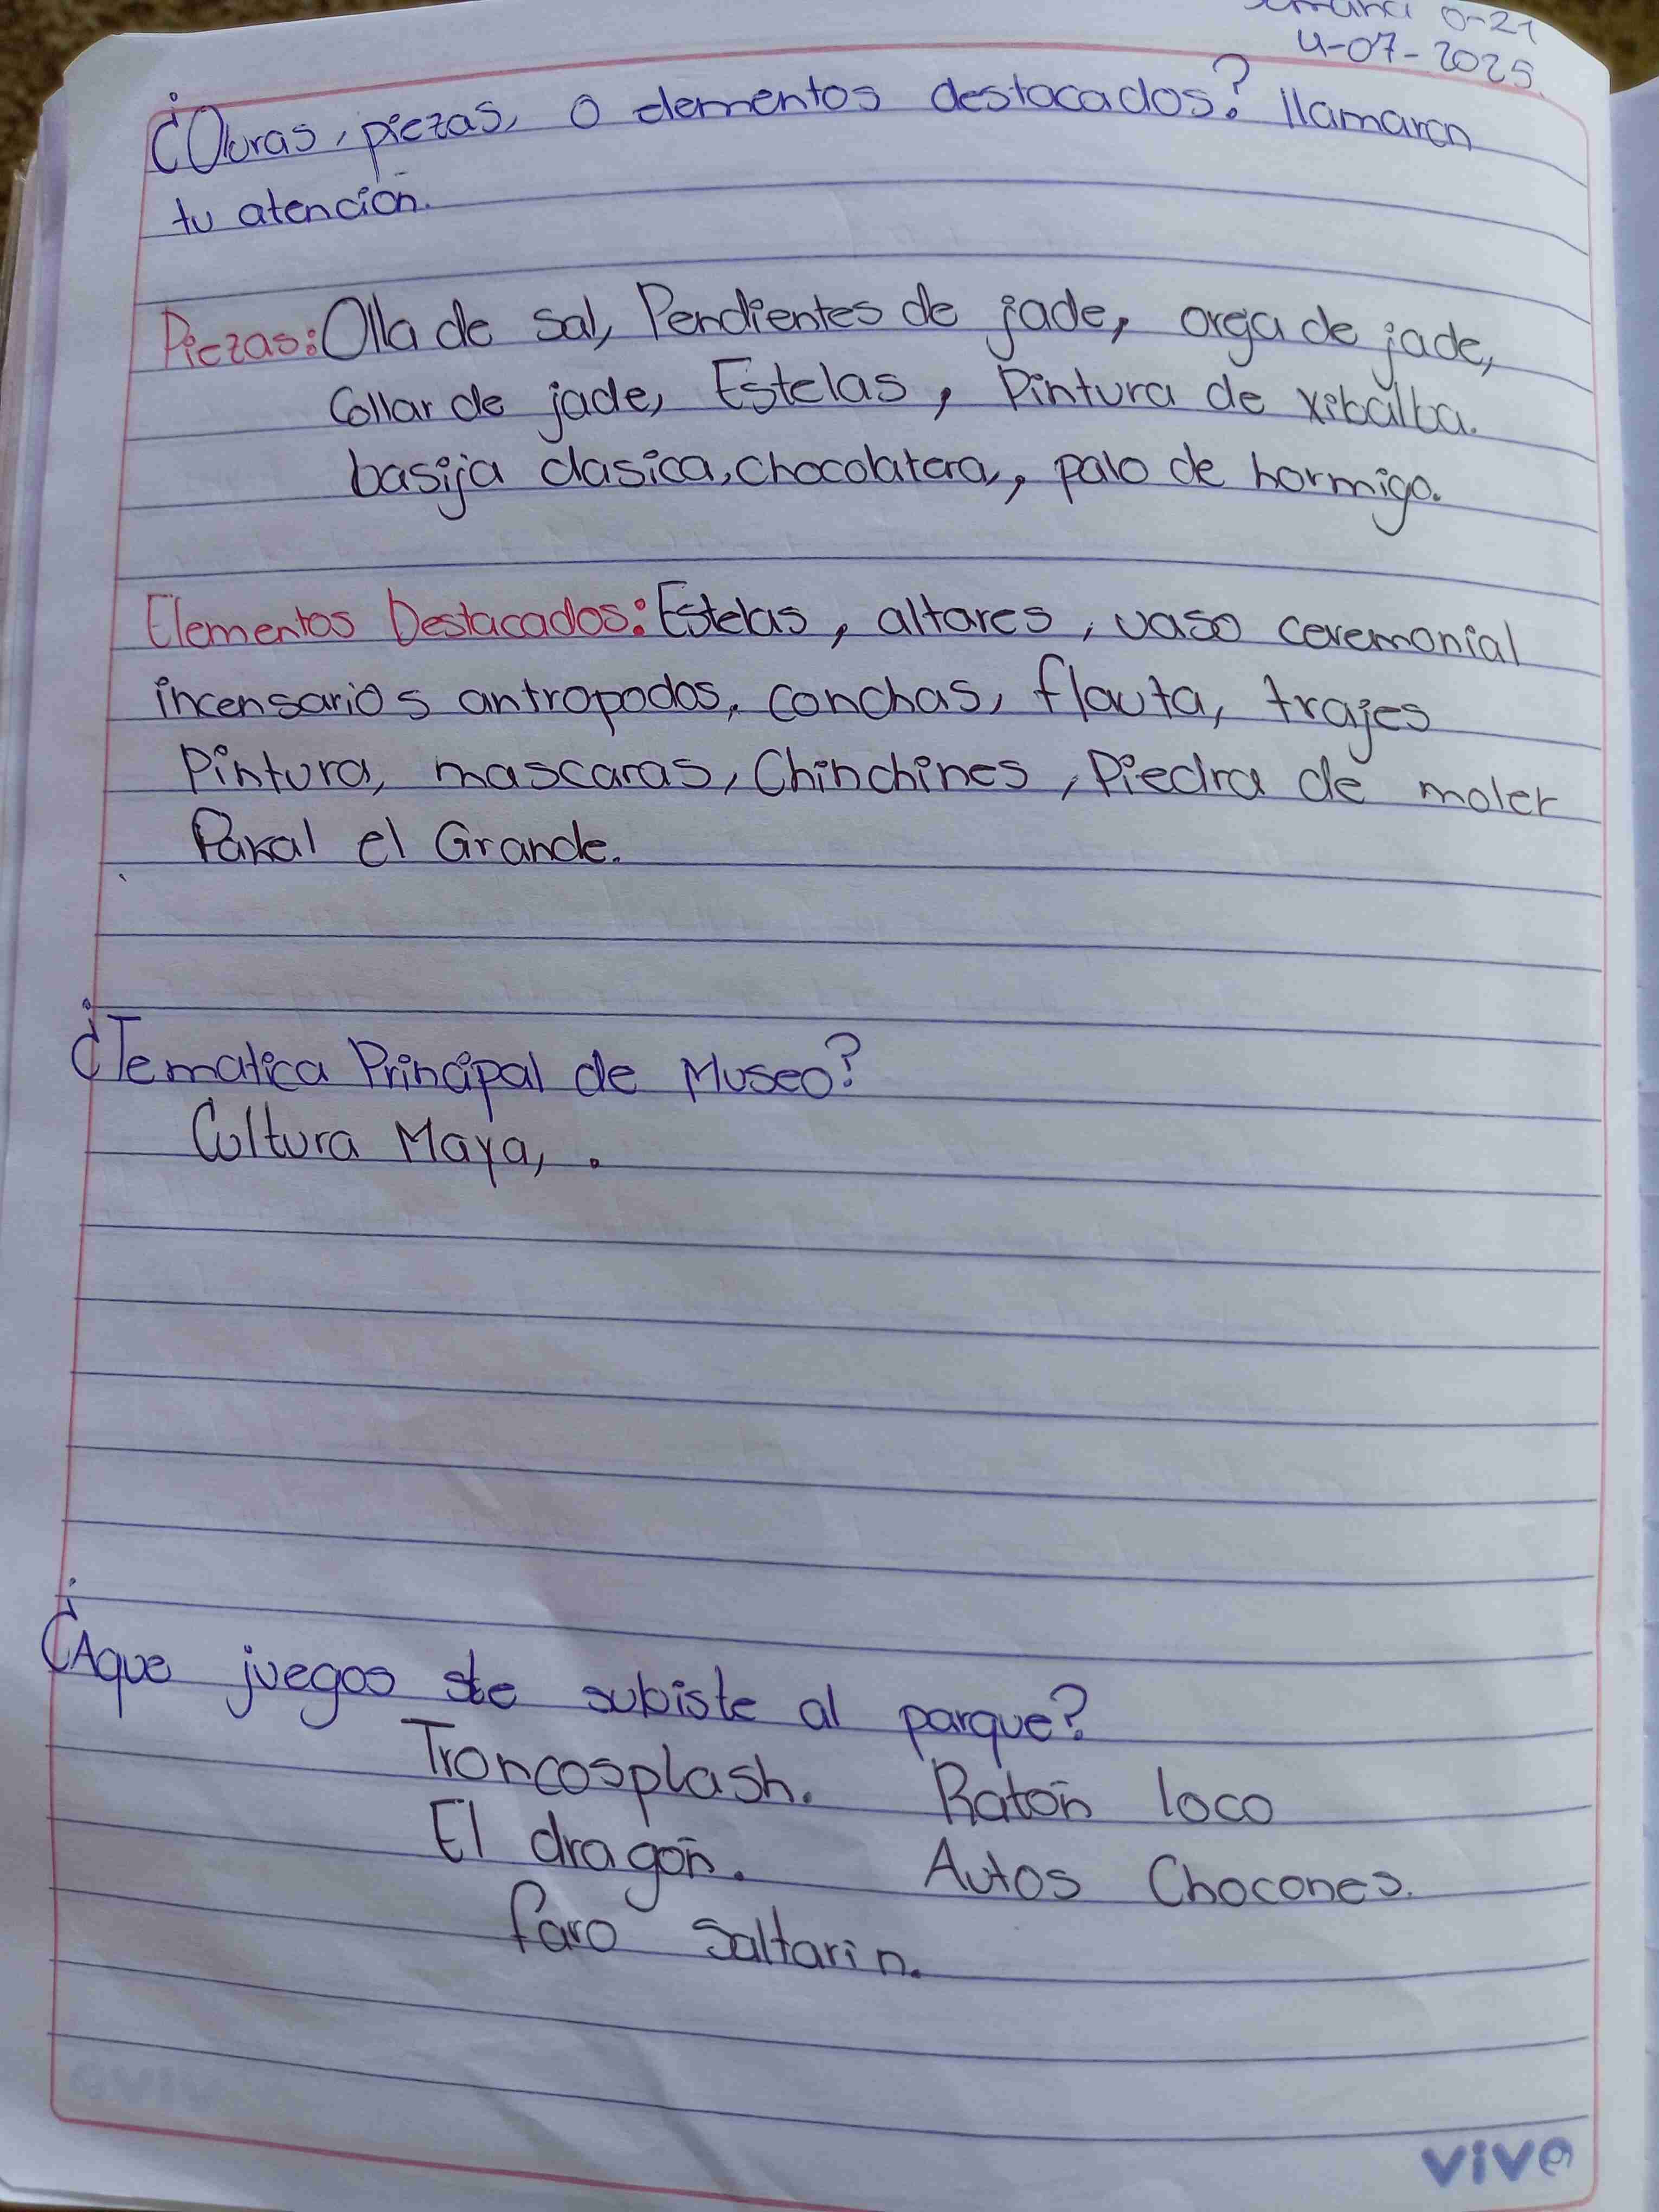 0-21
4-07-2025.
¿Obras, piezas, o elementos destacados? llamaron
tu atención.
Piezas: Olla de sal, Pendientes de jade, orga de jade,
Collar de jade, Estelas, Pintura de xibalba.
basija clasica, chocolatera, palo de hormigo.
Elementos Destacados: Estelas, altares, vaso ceremonial
incensarios antropodos, conchas, flauta, trajes
Pintura, mascaras, Chinchines, Piedra de moler
Pakal el Grande.
¿Tematica Principal de Museo?
Cultura Maya, .
¿Aque juegos te subiste al parque?
Troncosplash. Ratón loco
El dragón. Autos Chocones.
faro Saltarin.
vive